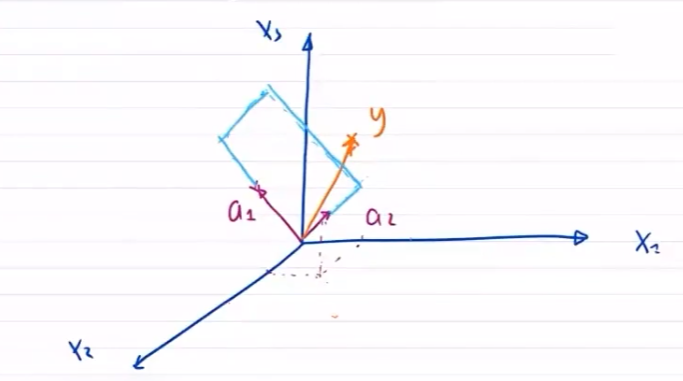 X₃
y
a₁
a₂
X₁
X₂